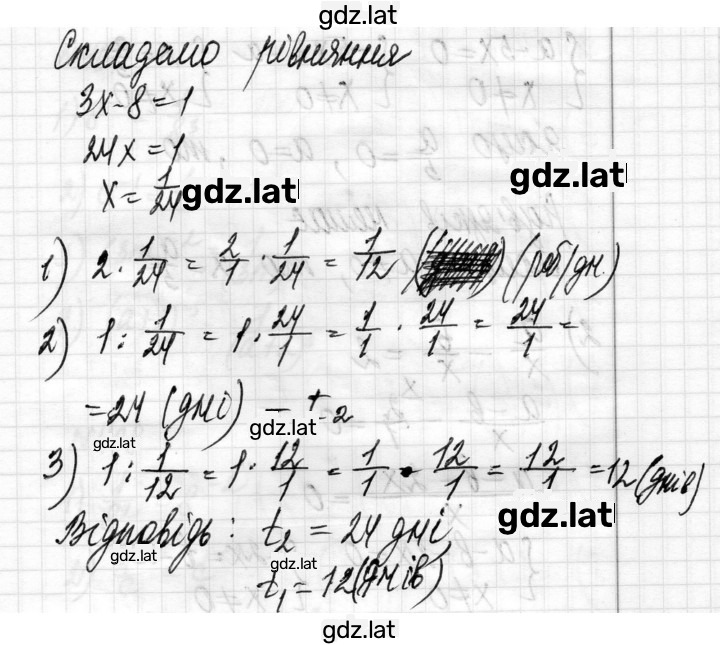 gdz.lat
Складемо рівняння
3x-8=1
24x=1
x=1/24
gdz.lat
gdz.lat
1) 2·1/24=2/1·1/24=1/12 (роб/дн.)
2) 1:1/24=1·24/1=1/1·24/1=24/1=
=24 (дні) – t₂
gdz.lat
gdz.lat
3) 1:1/12=1·12/1=1/1·12/1=12/1=12 (днів)
gdz.lat
Відповідь: t₂=24 дні,
gdz.lat
t₁=12 (днів)
gdz.lat
gdz.lat